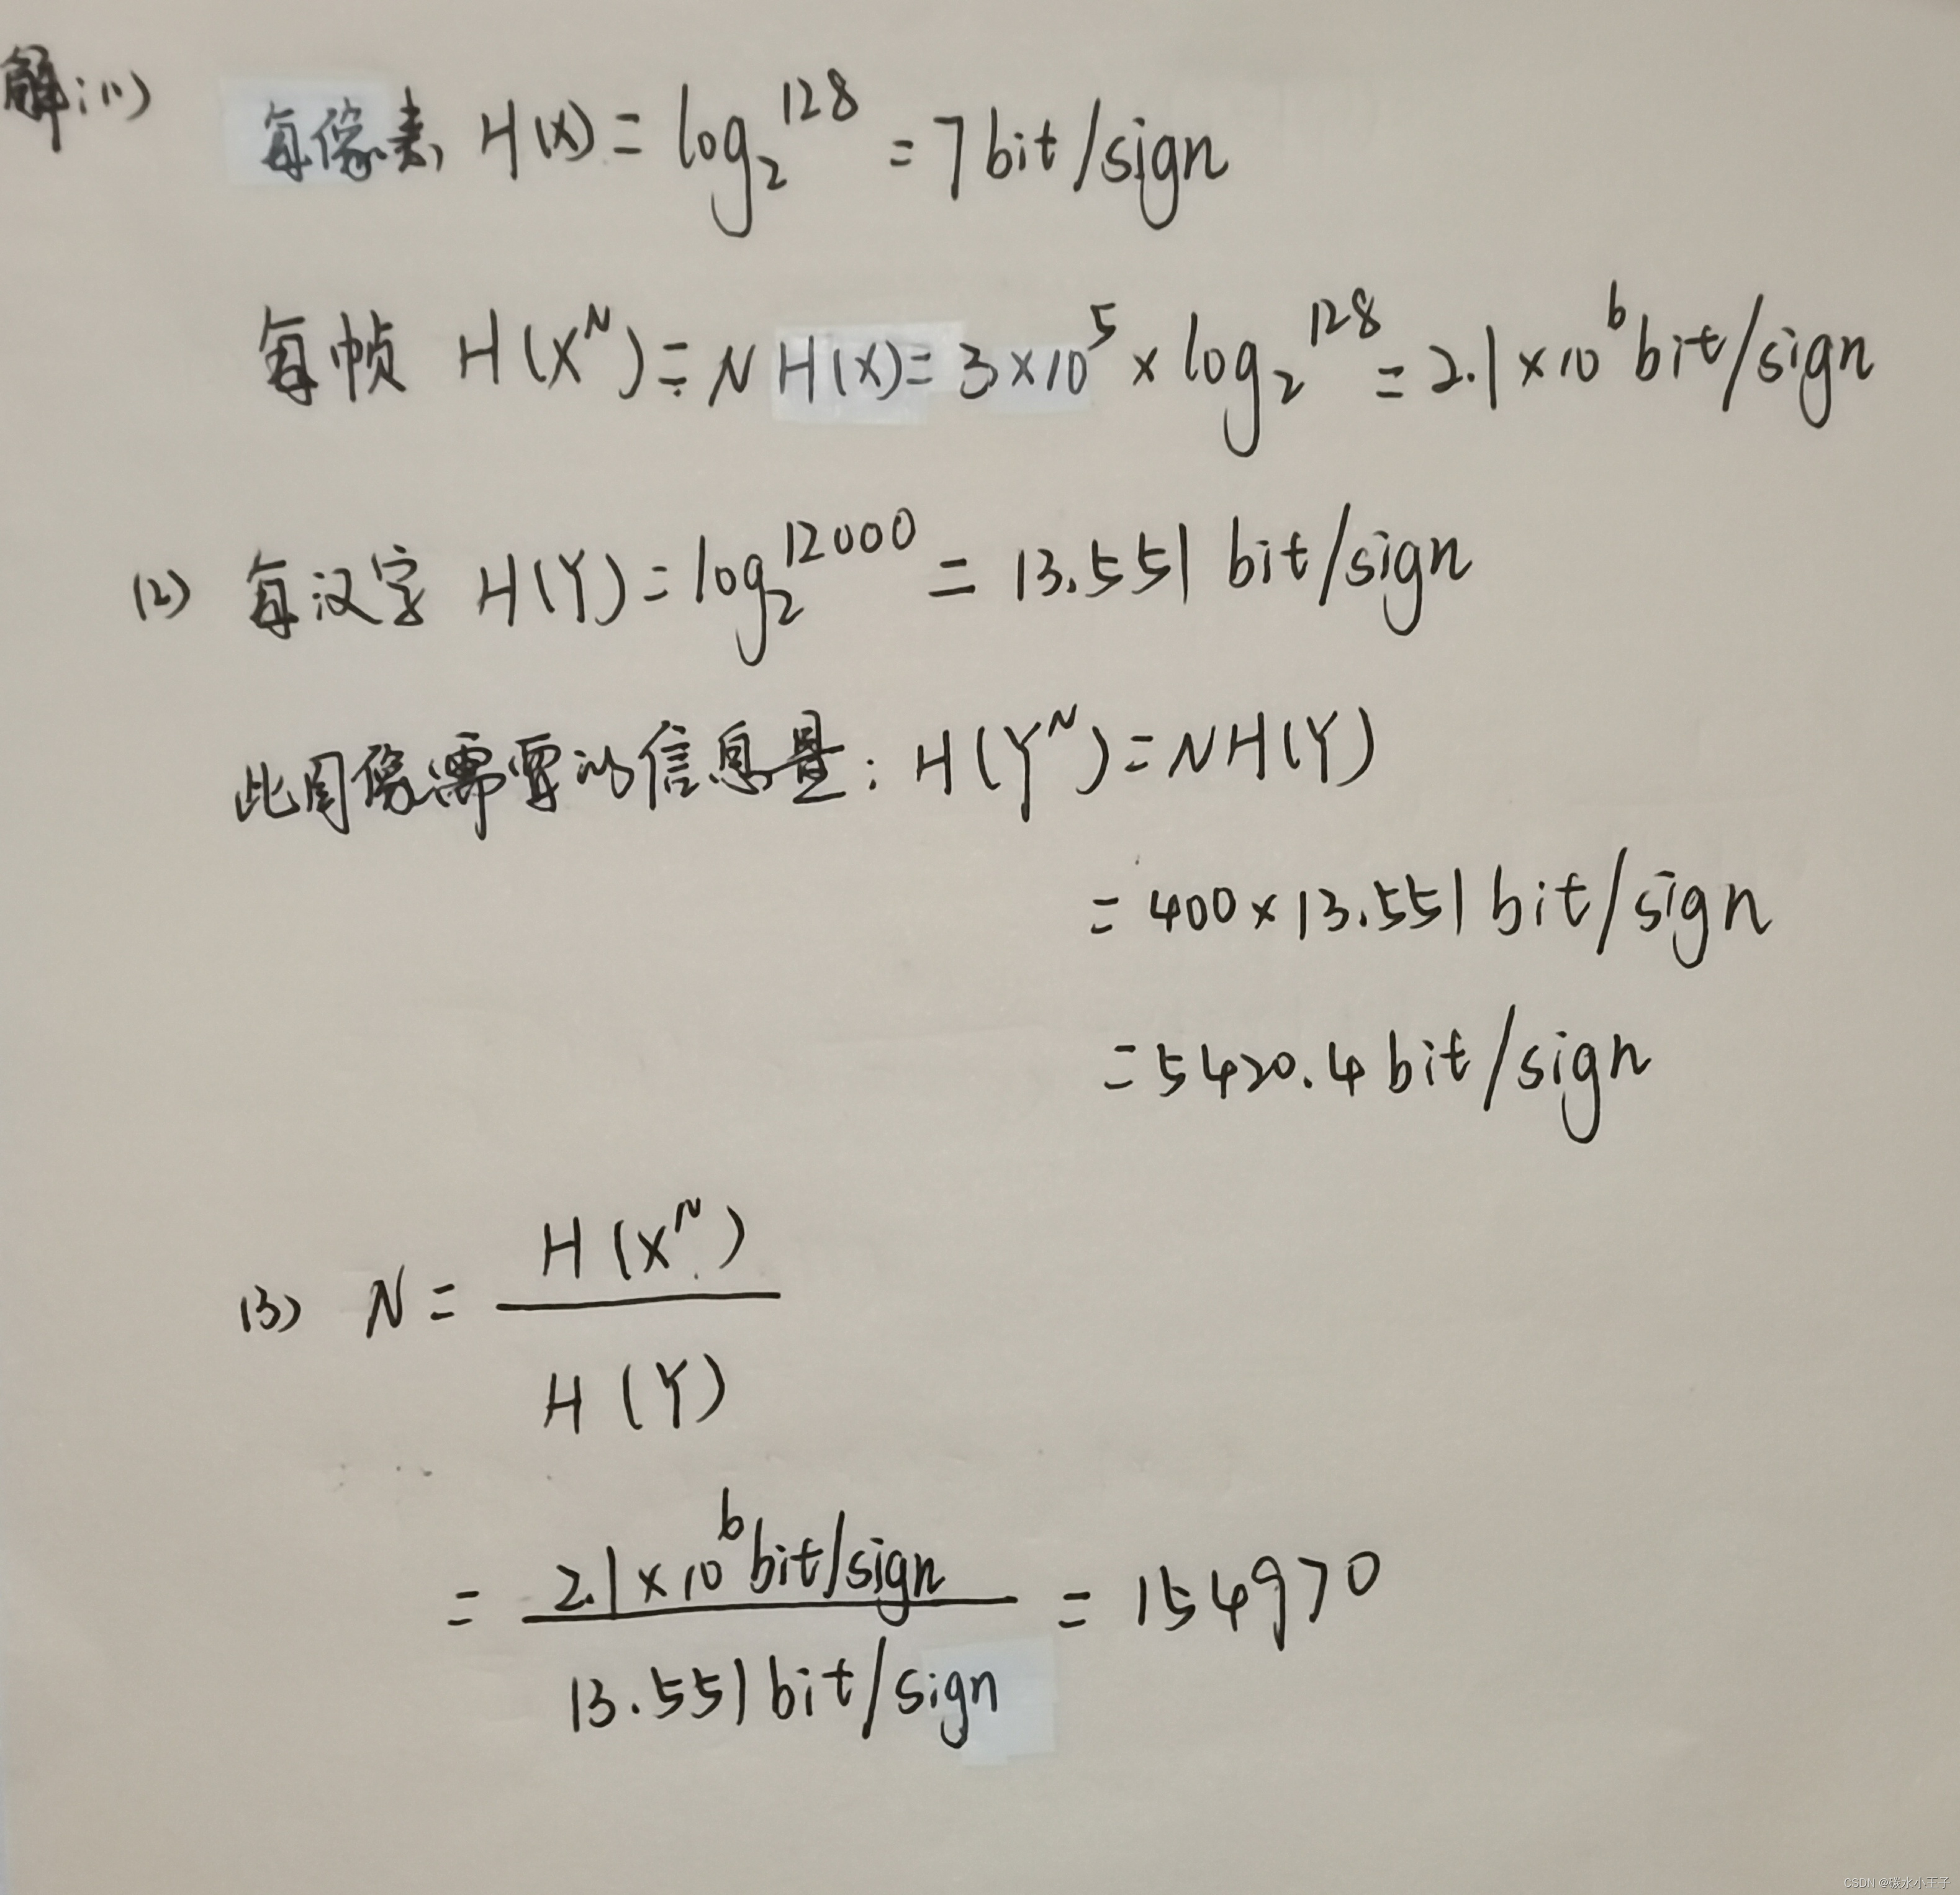 解:(1) 每像素 H(X) = log₂^128 = 7bit/sign
每帧 H(X^N) = NH(X) = 3×10^5 × log₂^128 = 2.1×10^6 bit/sign
(2) 每汉字 H(Y) = log₂^12000 = 13.551 bit/sign
此图像需要的信息量: H(Y^N) = NH(Y)
= 400×13.551 bit/sign
= 5420.4 bit/sign
(3) N = H(X^N) / H(Y)
= 2.1×10^6 bit/sign / 13.551 bit/sign = 154970
CSDN @碳水小王子